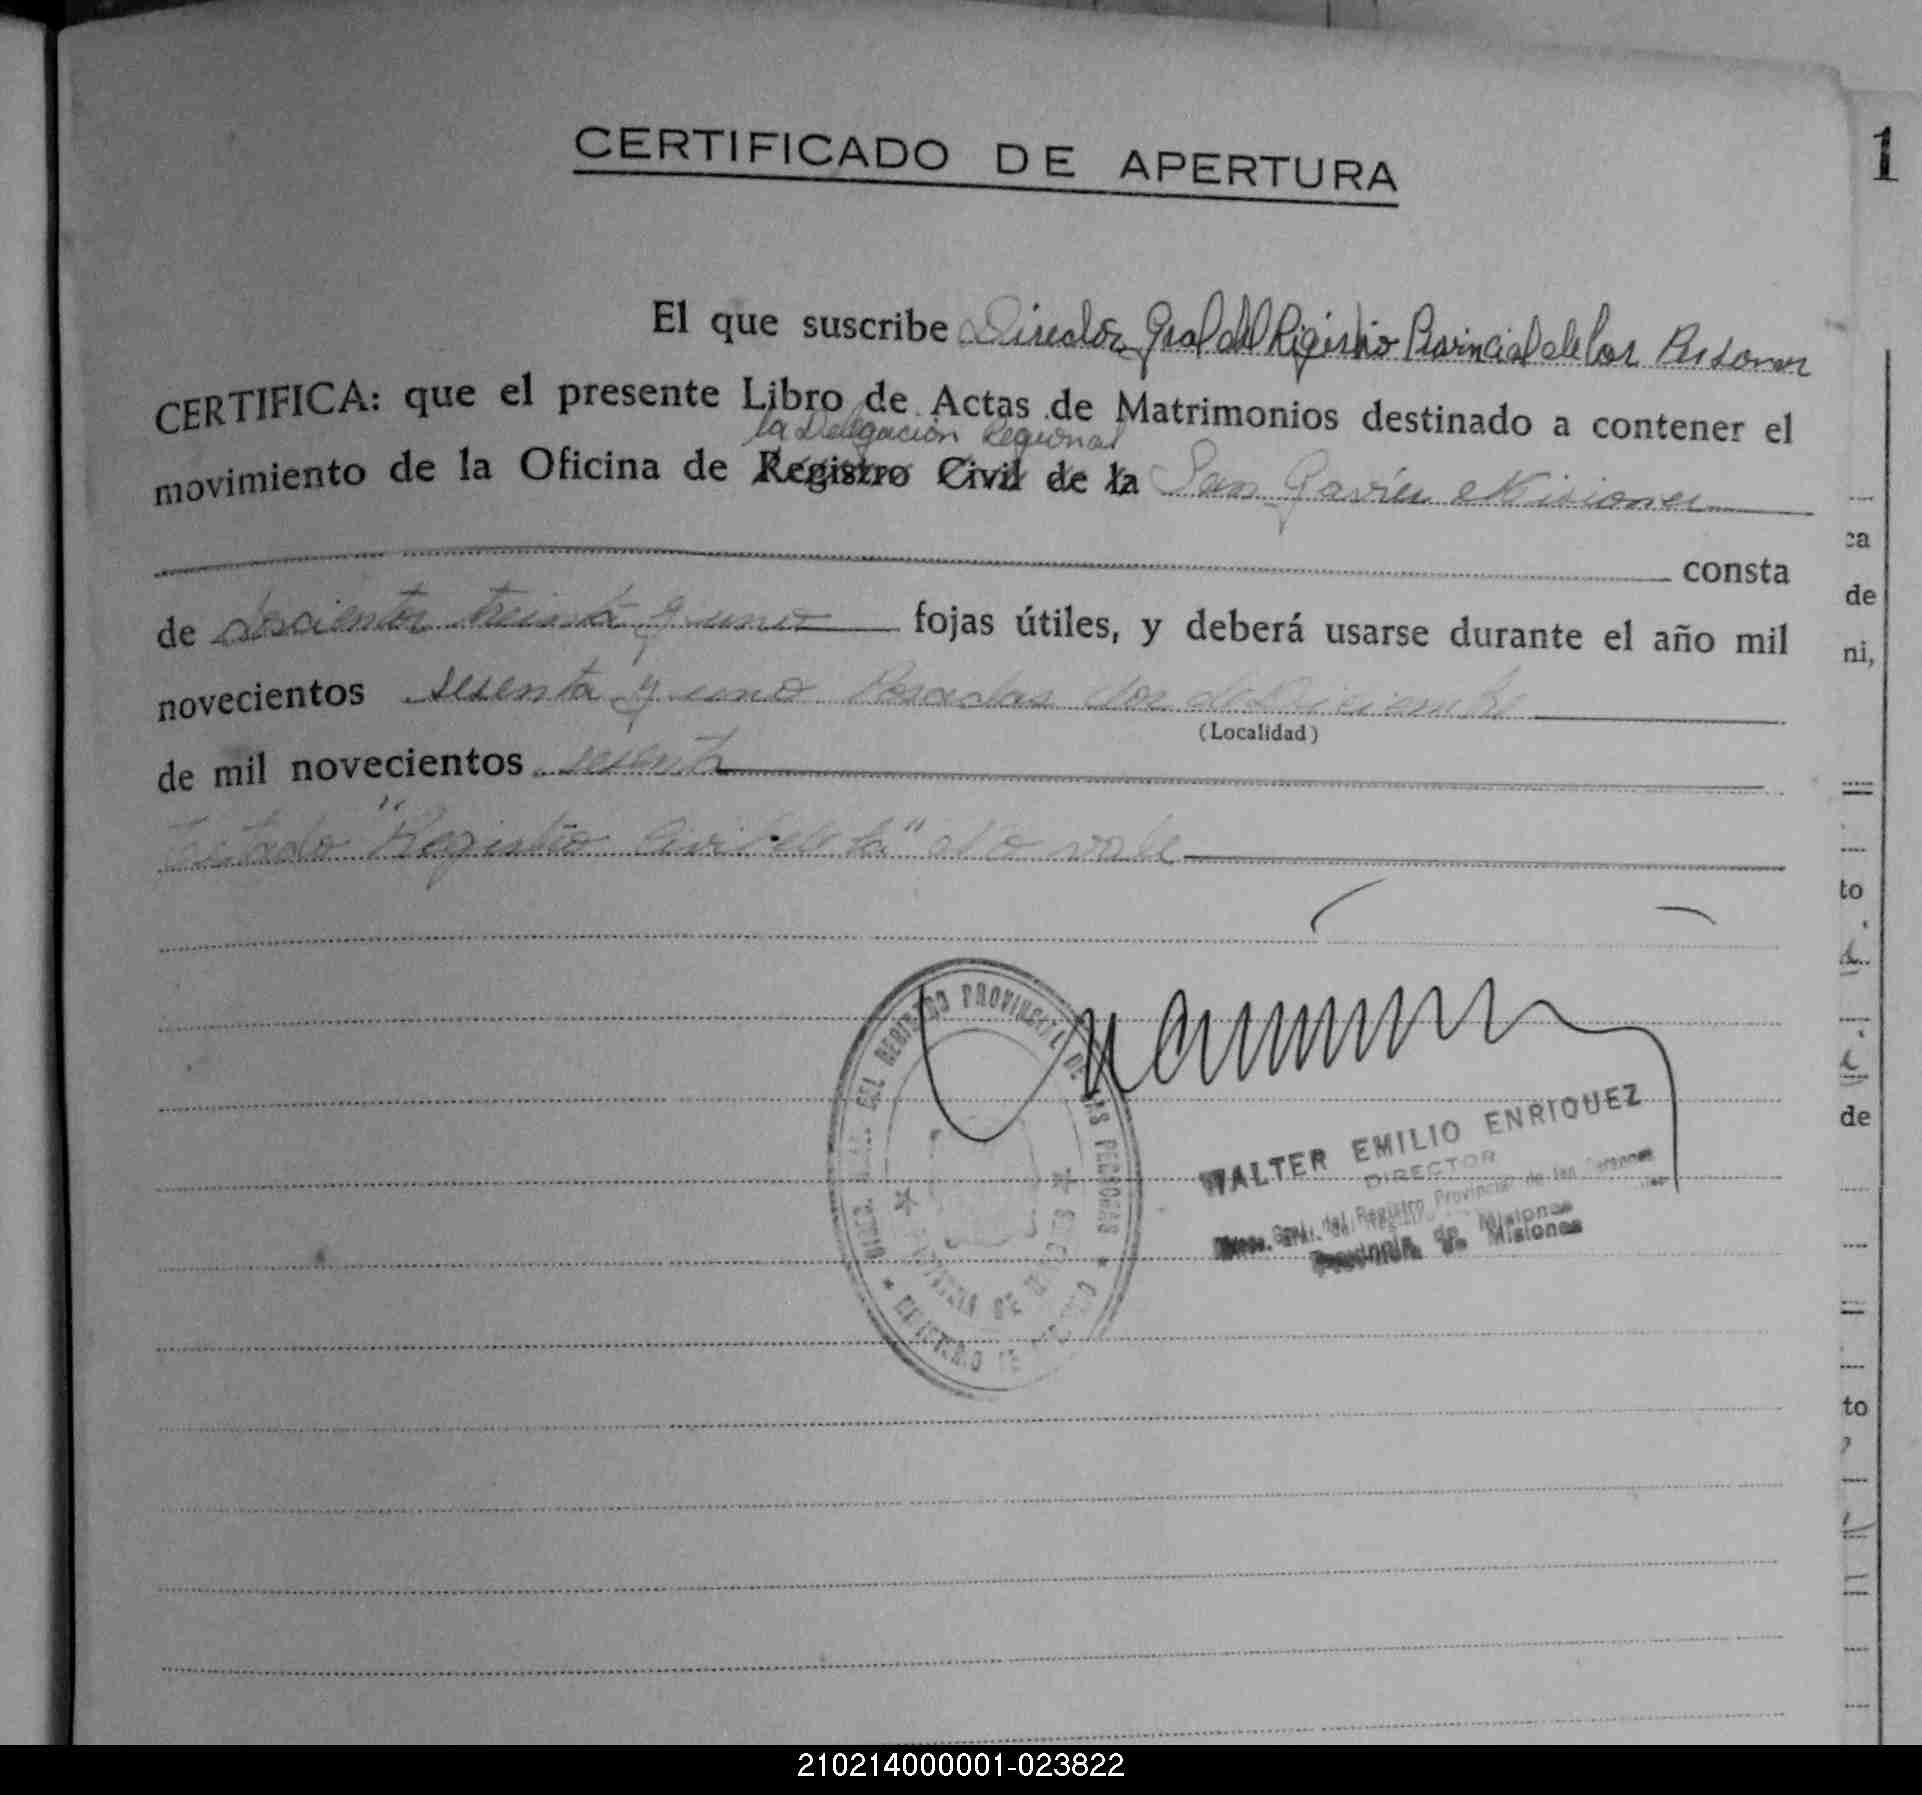 CERTIFICADO DE APERTURA
1
El que suscribe Director Gral del Registro Provincial de las Personas
CERTIFICA: que el presente Libro de Actas de Matrimonios destinado a contener el
la Delegación Regional
movimiento de la Oficina de Registro Civil de la San Javier Misiones
consta
de doscientos treinta y uno fojas útiles, y deberá usarse durante el año mil
novecientos sesenta y uno Posadas dos de Diciembre
(Localidad)
de mil novecientos sesenta
Testado "Registro Civil de la" No vale
WALTER EMILIO ENRIQUEZ
DIRECTOR
Gral. del Registro Provincial de las Personas
Provincia de Misiones
ca
de
ni,
to
de
to
210214000001-023822